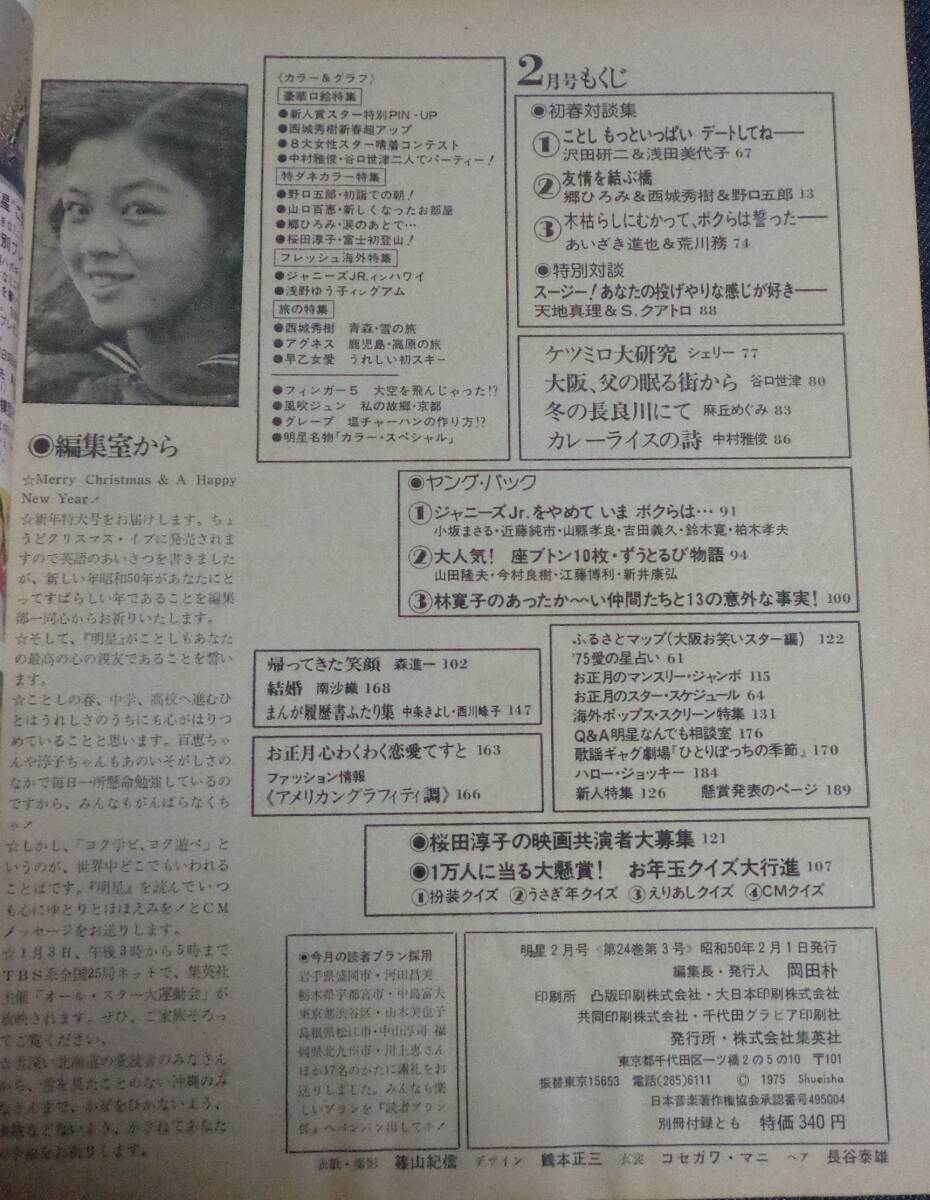 2月号もくじ
●初春対談集
①ことし もっといっぱい デートしてね――
沢田研二&浅田美代子 67
②友情を結ぶ橋
郷ひろみ&西城秀樹&野口五郎 13
③木枯らしにむかって、ボクらは誓った――
あいざき進也&荒川務 74
●特別対談
スージー!あなたの投げやりな感じが好き――
天地真理&S.クアトロ 88
〈カラー&グラフ〉
豪華口絵特集
●新人賞スター特別PIN・UP
●西城秀樹新春超アップ
●8大女性スター晴着コンテスト
●中村雅俊・谷口世津二人でパーティー!
特ダネカラー特集
●野口五郎・初詣での朝!
●山口百恵・新しくなったお部屋
●郷ひろみ・涙のあとで…
●桜田淳子・富士初登山!
フレッシュ海外特集
●ジャニーズJR.インハワイ
●浅野ゆう子イングアム
旅の特集
●西城秀樹 青森・雪の旅
●アグネス 鹿児島・高原の旅
●早乙女愛 うれしい初スキー
●フィンガー5 大空を飛んじゃった!?
●風吹ジュン 私の故郷・京都
●グレープ 塩チャーハンの作り方!?
●明星名物「カラー・スペシャル」
ケツミロ大研究 シェリー 77
大阪、父の眠る街から 谷口世津 80
冬の長良川にて 麻丘めぐみ 83
カレーライスの詩 中村雅俊 86
●ヤング・パック
①ジャニーズJr.をやめて いま ボクらは… 91
小坂まさる・近藤純市・山縣孝良・吉田義久・鈴木寛・柏木孝夫
②大人気! 座ブトン10枚・ずうとるび物語 94
山田隆夫・今村良樹・江藤博利・新井康弘
③林寛子のあったか〜い仲間たちと13の意外な事実! 100
帰ってきた笑顔 森進一 102
結婚 南沙織 168
まんが履歴書ふたり集 中条きよし・西川峰子 147
お正月心わくわく恋愛てすと 163
ファッション情報
《アメリカングラフィティ調》 166
ふるさとマップ(大阪お笑いスター編) 122
'75愛の星占い 61
お正月のマンスリー・ジャンボ 115
お正月のスター・スケジュール 64
海外ポップス・スクリーン特集 131
Q&A明星なんでも相談室 176
歌謡ギャグ劇場『ひとりぼっちの季節』 170
ハロー・ジョッキー 184
新人特集 126 懸賞発表のページ 189
●桜田淳子の映画共演者大募集 121
●1万人に当る大懸賞! お年玉クイズ大行進 107
①扮装クイズ ②うさぎ年クイズ ③えりあしクイズ ④CMクイズ
●編集室から
☆Merry Christmas & A Happy
New Year!
☆新年特大号をお届けします。ちょ
うどクリスマス・イブに発売されま
すので英語のあいさつを書きました
が、新しい年昭和50年があなたにと
ってすばらしい年であることを編集
部一同心からお祈りいたします。
☆そして、『明星』がことしもあなた
の最高の心の親友であることを誓い
ます。
☆ことしの春、中学、高校へ進むひ
とはうれしさのうちにも心がはりつ
めていることと思います。百恵ちゃ
んや淳子ちゃんもあのいそがしさの
なかで毎日一所懸命勉強しているの
ですから、みんなもがんばらなくち
ゃ!
☆しかし、「ヨク学ビ、ヨク遊ベ」と
いうのが、世界中どこでもいわれる
ことばです。『明星』を読んでいつ
も心にゆとりとほほえみを!とCM
メッセージをお送りします。
☆1月3日、午後3時から5時まで
TBS系全国25局ネットで、集英社
主催「オール・スター大運動会」が
放映されます。ぜひ、ご家族そろっ
てご覧ください。
☆雪深い北海道の愛読者のみなさん
から、雪を見たことのない沖縄のみ
なさんまで、かぜをひかないよう、
などないよう、かさねてあなた
をお祈りします。
●今月の読者プラン採用
岩手県盛岡市・河田昌美
栃木県宇都宮市・中島富夫
東京都渋谷区・山本美也子
島根県松江市・中山淳司 福
岡県北九州市・川上恵さん
ほか17名のかたに謝礼をお
送りしました。みんなも楽
しいプランを『読者プラン
係』へバンバン出してネ!
明星2月号《第24巻第3号》昭和50年2月1日発行
編集長・発行人 岡田朴
印刷所 凸版印刷株式会社・大日本印刷株式会社
共同印刷株式会社・千代田グラビア印刷社
発行所・株式会社集英社
東京都千代田区一ツ橋2の5の10 〒101
振替東京15653 電話(265)6111 © 1975 Shueisha
日本音楽著作権協会承認番号495004
別冊付録とも 特価340円
表紙・撮影 篠山紀信 デザイン 鶴本正三 衣装 コセガワ・マニ ヘア 長谷泰雄